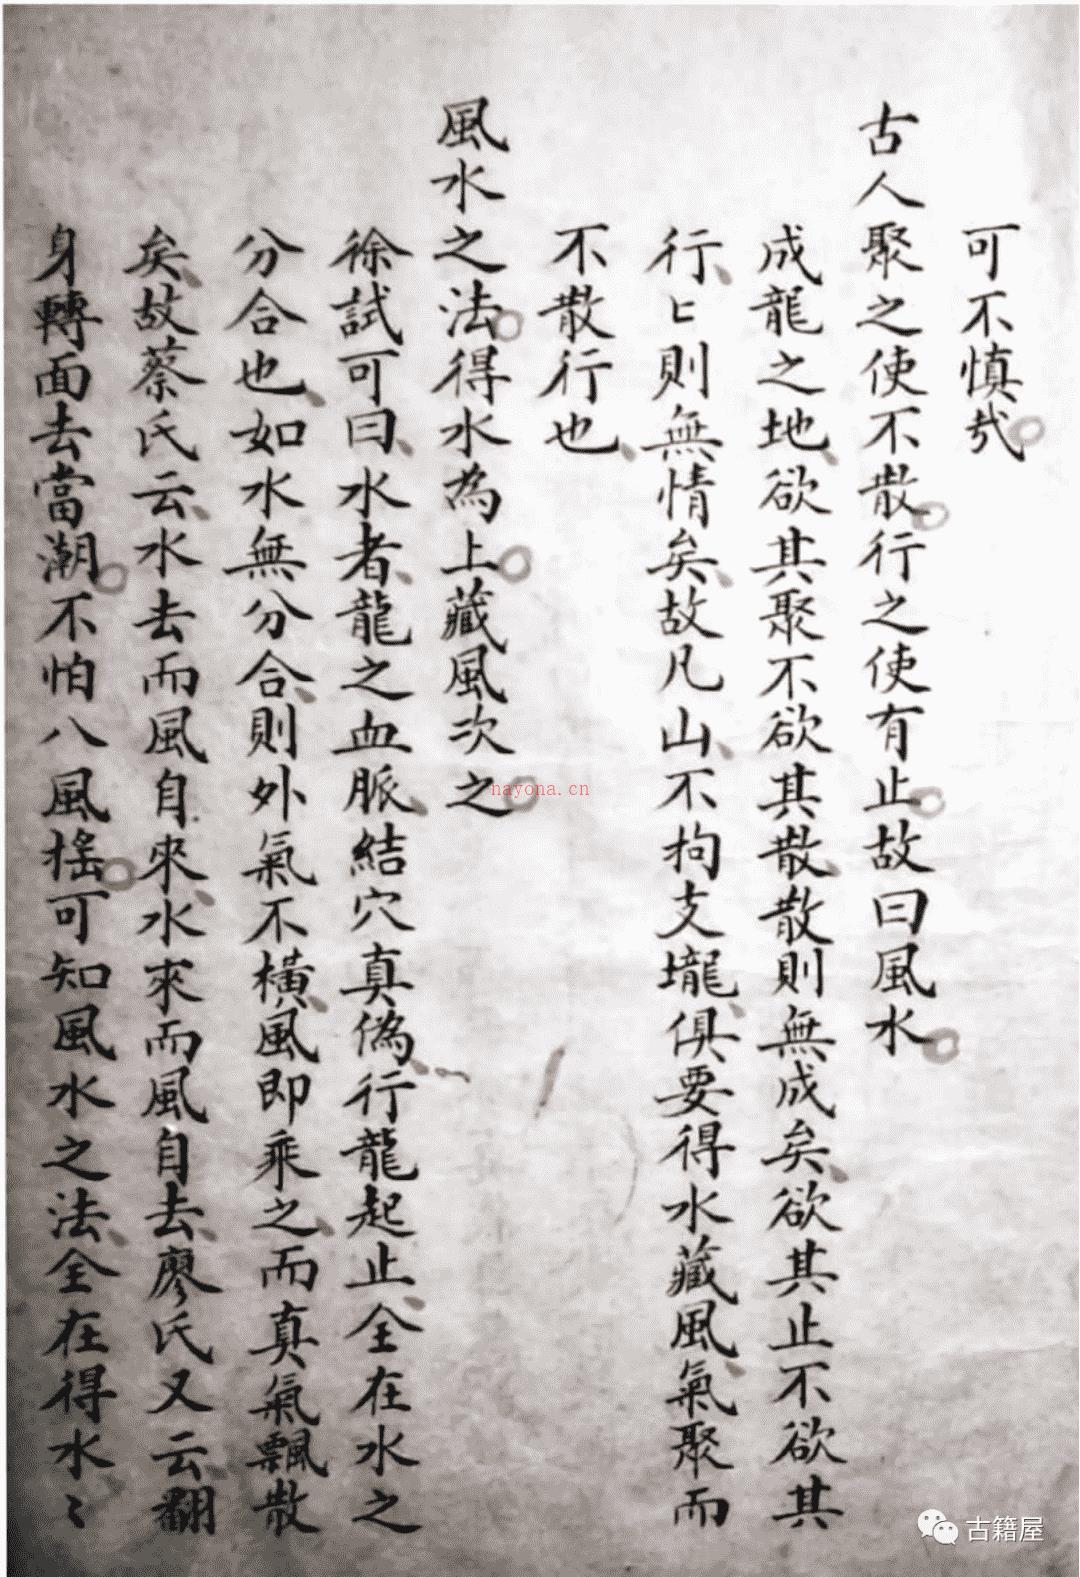 可不慎哉
古人聚之使不散行之使有止故曰風水
成龍之地欲其聚不欲其散散則無成矣欲其止不欲其
行〻則無情矣故凡山不拘支壠俱要得水藏風氣聚而
不散行也
風水之法得水為上藏風次之
徐試可曰水者龍之血脈結穴真偽行龍起止全在水之
分合也如水無分合則外氣不橫風即乘之而真氣飄散
矣故蔡氏云水去而風自來水來而風自去廖氏又云翻
身轉面去當潮不怕八風搖可知風水之法全在得水〻
hayona.cn
古籍屋